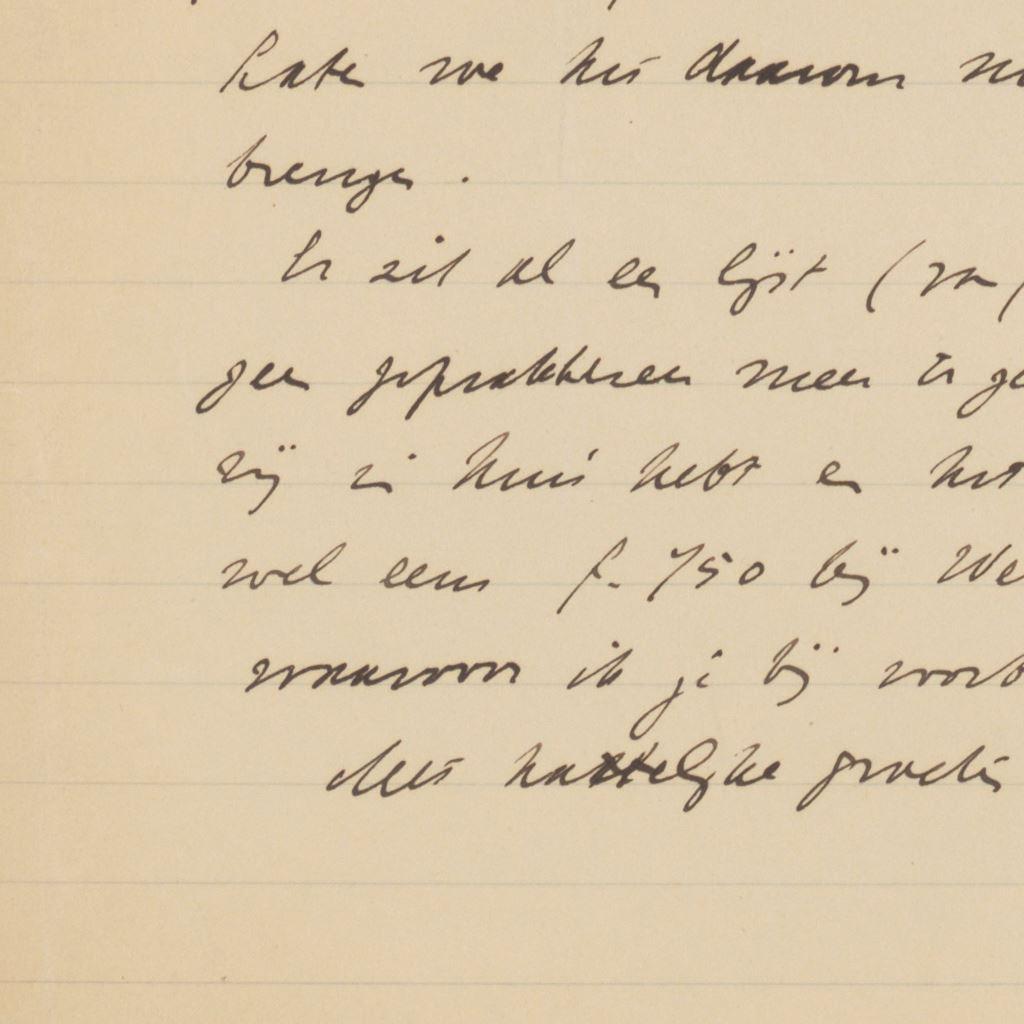 Laten we het daarom
brengen.
Er zit al een lijst (van
geen geprakkiseer meer
zij in huis hebt en het
wel eens f. 750 bij We
waarvoor ik je bij voorb
Met hartelijke groeten